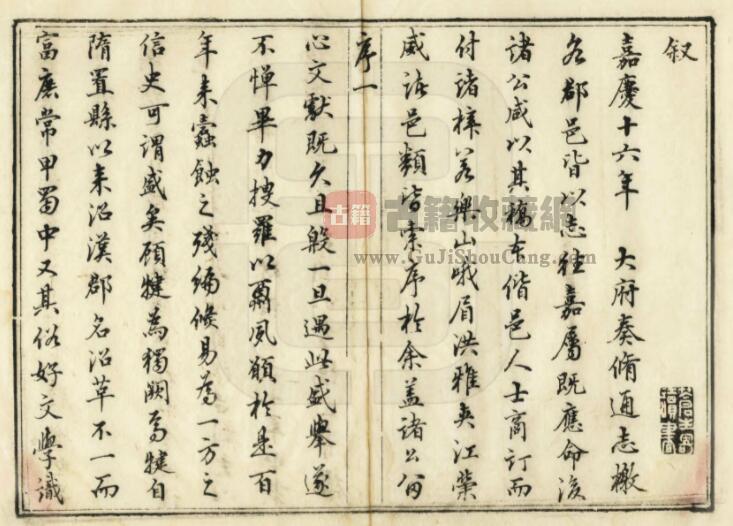 叙
嘉慶十六年　大府奏脩通志檄
各郡邑皆以志往嘉屬既應命後
諸公咸以其稿本偕邑人士商訂而
付諸梓若樂山峨眉洪雅夾江榮
威諸邑類皆索序於余蓋諸公留
序一
心文獻既久且殷一旦遇此盛舉遂
不憚畢力搜羅以肅夙願於是百
年來蠹蝕之殘編倏易為一方之
信史可謂盛矣顧犍為獨闕焉犍自
隋置縣以來沿漢郡名沿草不一而
富庶常甲蜀中又其俗好文學識
古籍
古籍收藏網
www.GuJiShouCang.com